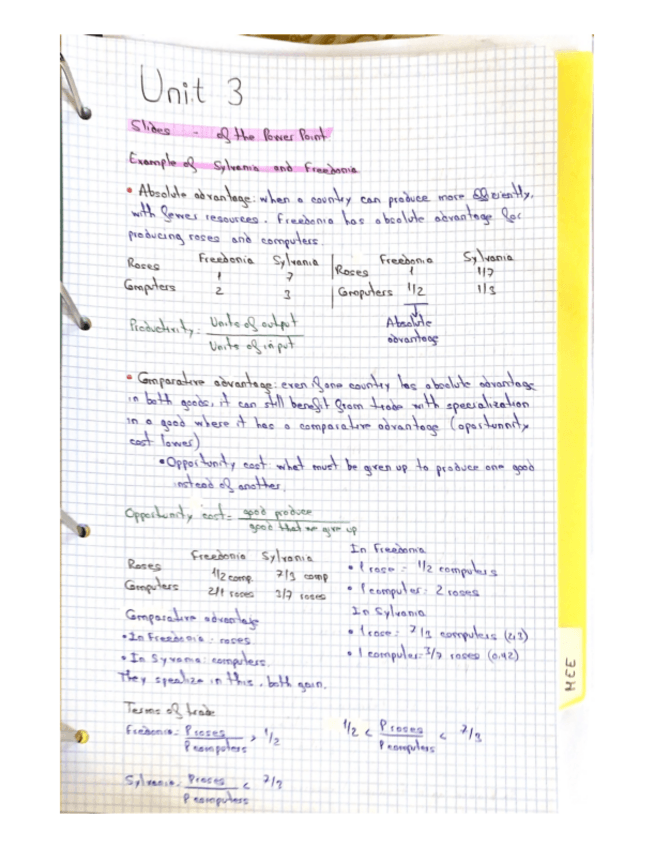 Unit 3
Slides - of the Power Point
Example of Sylvania and Freedonia
• Absolute advantage: when a country can produce more efficiently,
with fewer resources. Freedonia has absolute advantage for
producing roses and computers.
Freedonia Sylvania | Freedonia Sylvania
Roses 1 7 | Roses 1 1/7
Computers 2 3 | Computers 1/2 1/3
Productivity: Units of output / Units of input
Absolute
advantage
• Comparative advantage: even if one country has absolute advantage
in both goods, it can still benefit from trade with specialization
in a good where it has a comparative advantage (oportunnity
cost lower)
• Opportunity cost what must be given up to produce one good
instead of another.
Opportunity cost = good produce / good that we give up
Freedonia Sylvania
Roses 1/2 comp. 7/3 comp
Computers 2/1 roses 3/7 roses
In Freedonia
• 1 rose = 1/2 computers
• 1 computer: 2 roses
In Sylvania
• 1 rose: 7/3 computers (2,3)
• 1 computer: 3/7 roses (0,42)
Comparative advantage
• In Freedonia: roses
• In Syvania: computers.
They spealize in this, both gain.
Terms of trade
Fredonia: P roses / P computers > 1/2
1/2 < P roses / P computers < 7/3
Sylvania: P roses / P computers < 7/3
MEE